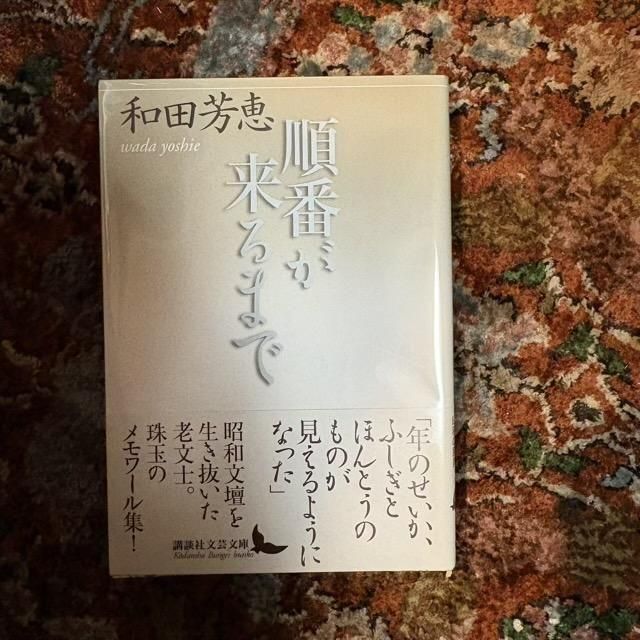 和田芳恵
wada yoshie
順番が
来るまで
「年のせいか、
ふしぎと
ほんとうの
ものが
見えるように
なった」
昭和文壇を
生き抜いた
老文士。
珠玉の
メモワール集！
講談社文芸文庫
Kodansha Bungei bunko